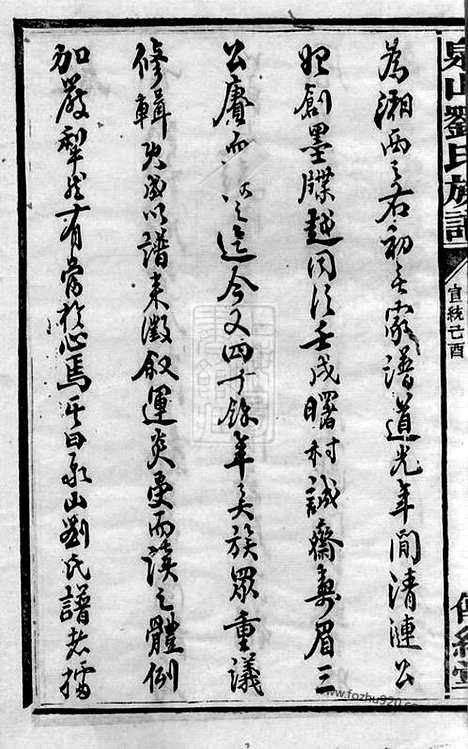 泉山劉氏族譜
宣統己酉
為湘西之右初無家譜道光年間清漣公
始創墨牒越同治壬戌曙村誠齋壽眉三
公賡而 之迄今又四十餘年矣族眾重議
修輯 成以譜來徵叙運炎受而讀之體例
加嚴犁然有當於心焉其曰泉山劉氏譜者
www.fozhu920.com